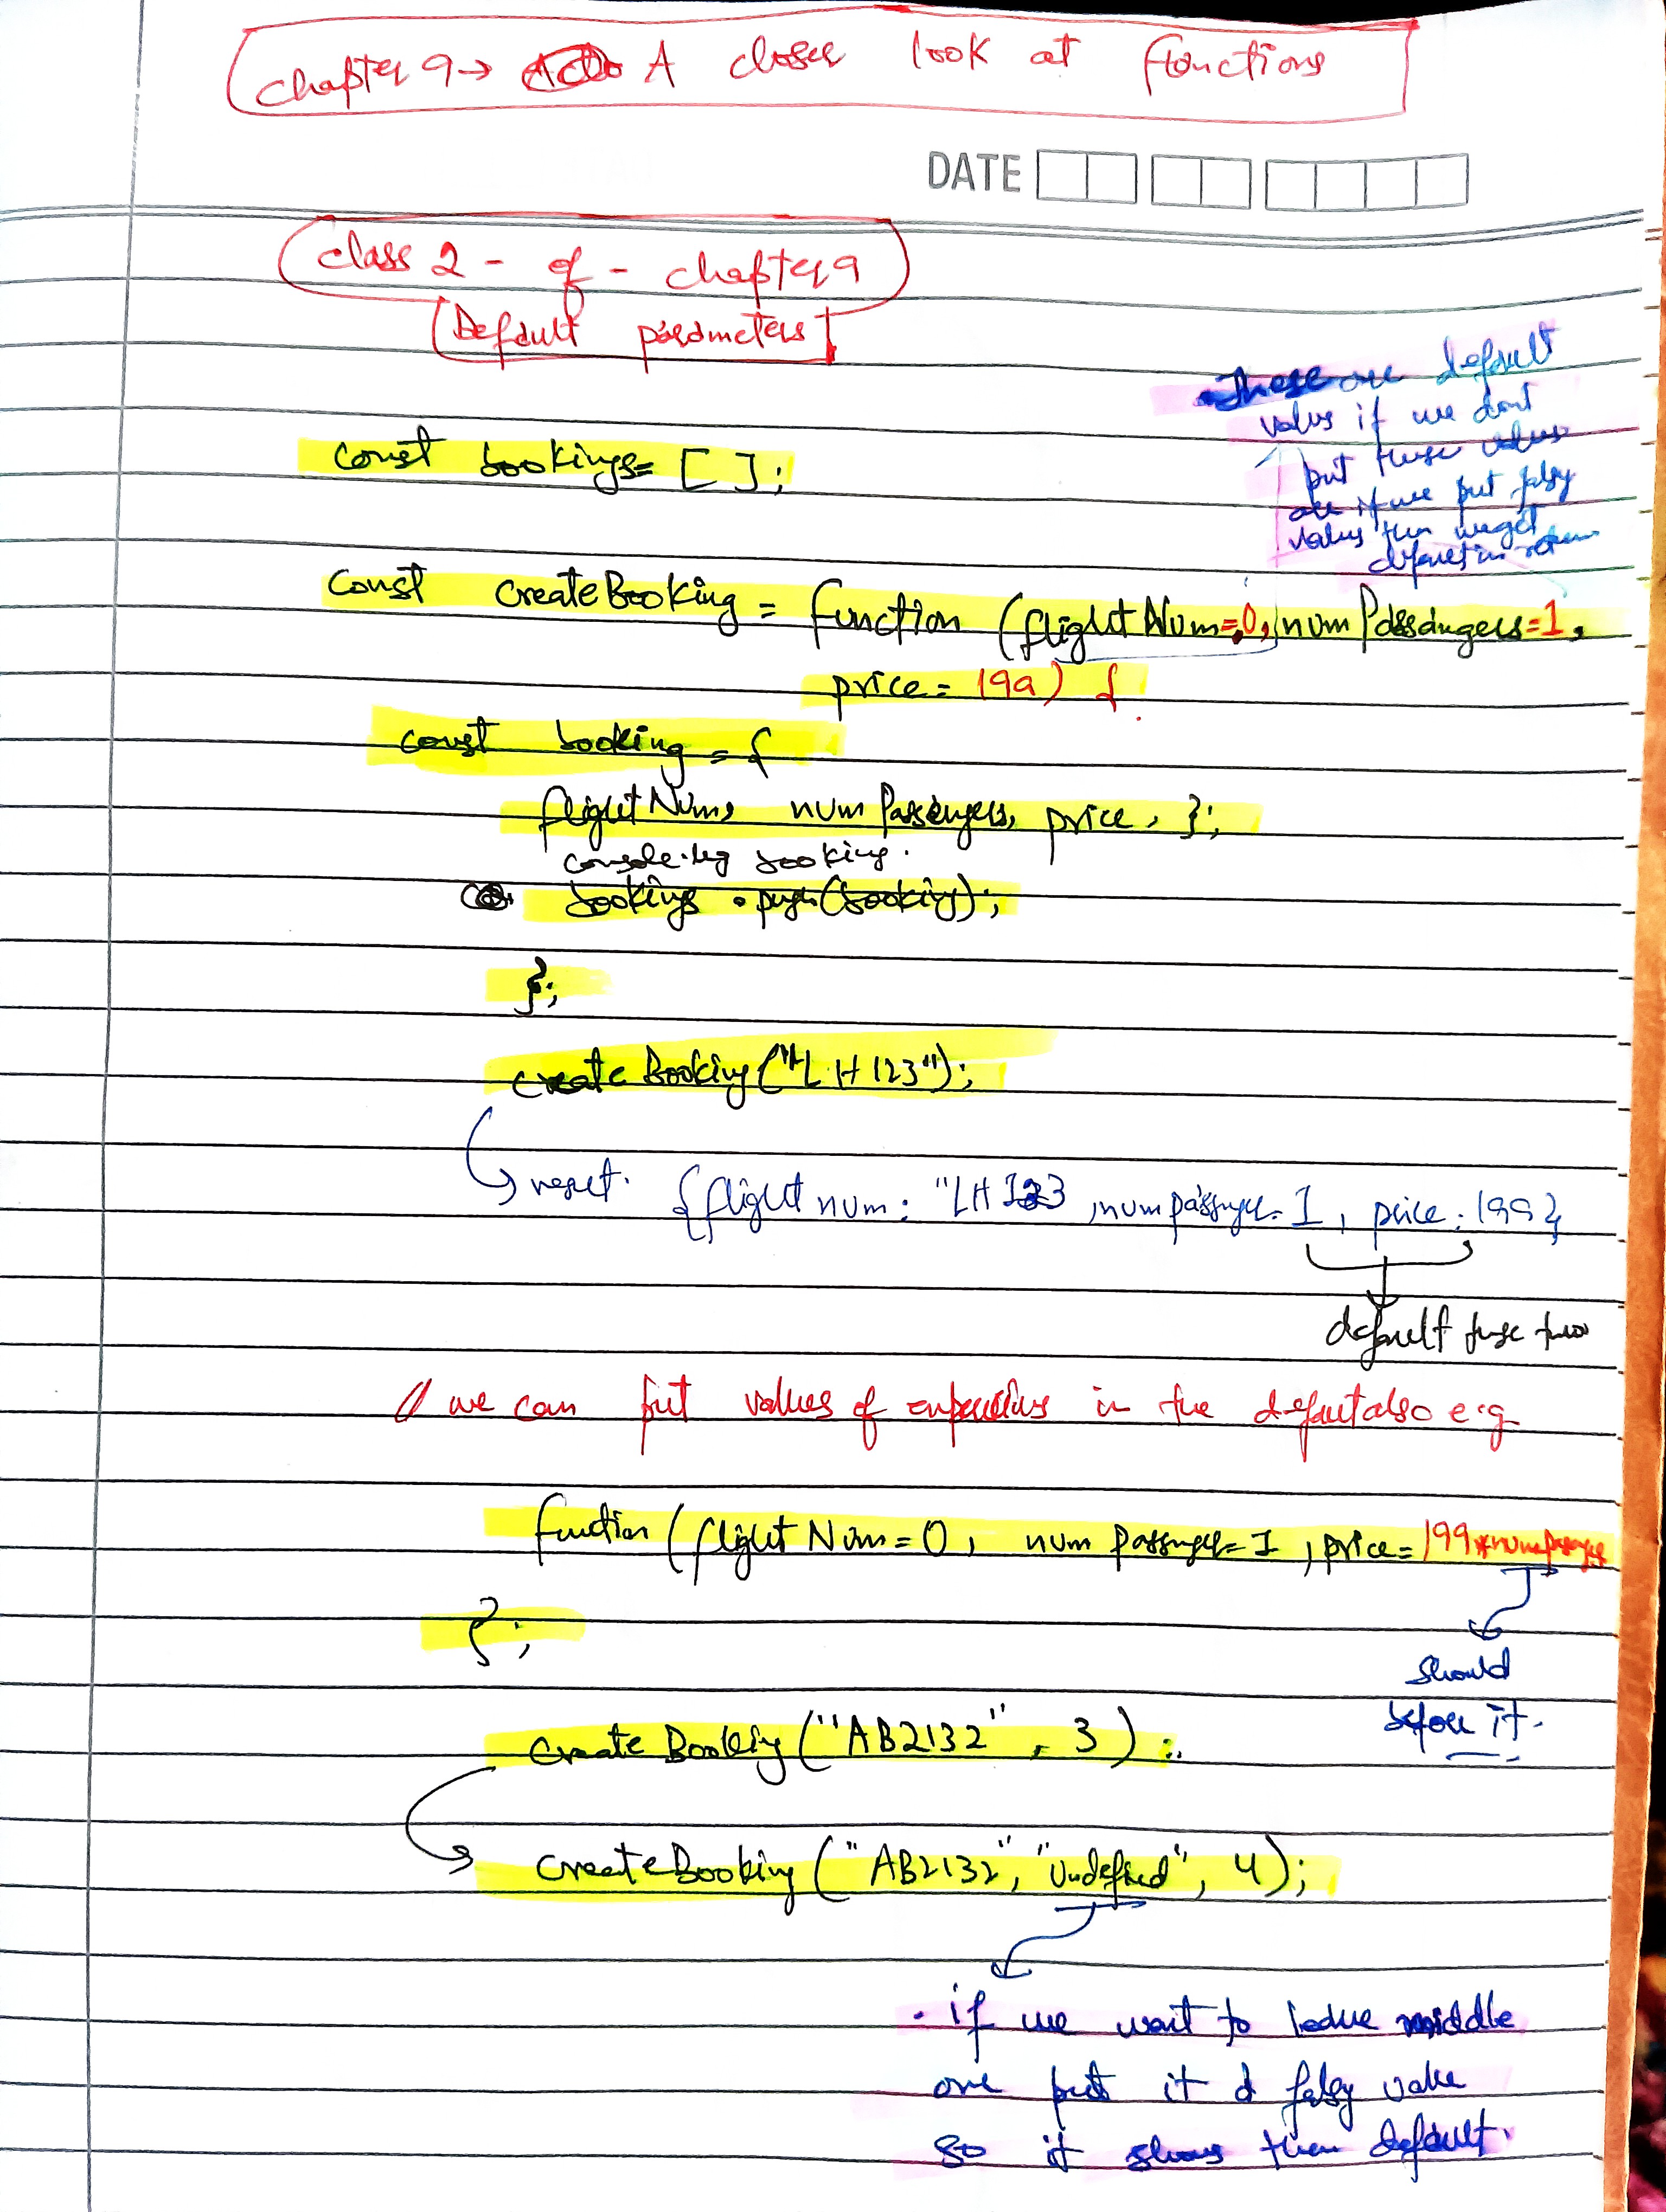 chapter 9 → A closer look at functions
DATE
class 2 - of - chapter 9
Default parameters
These are default
value if we dont
put these values
are if we put falsy
value then we get
default in return
const bookings = [ ];
const createBooking = function (flightNum=0, numPassangers=1,
price = 199) {
const booking = {
flightNum, numPassengers, price, };
console.log booking.
bookings . push(booking);
};
createBooking("LH123");
→ result. {flight num: "LH123 , num passnger = 1, price: 199},
default these two
// we can put values of in the default also e.g
function (flightNum = 0, num passnger = 1, price = 199*numpassnger
};
should
before it.
createBooking ("AB2132", 3);
createBooking ("AB2132", "undefined", 4);
. if we want to leave middle
one put it a falsy value
so it shows then default.